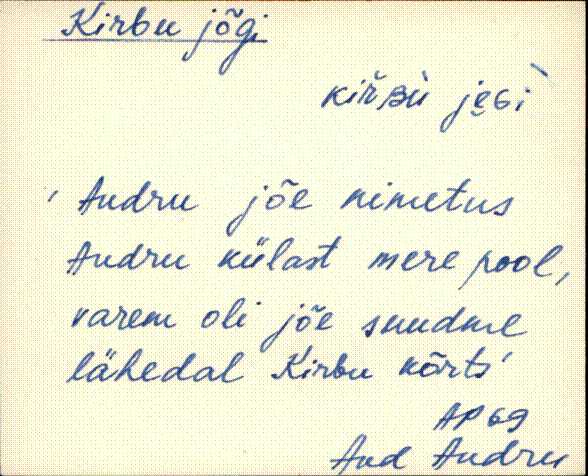 Kirbu jõgi
' Audru jõe nimetus
Audru külast mere pool,
varem oli jõe suudme
lähedal Kirbu kõrts'
AP 69
Aud Audru